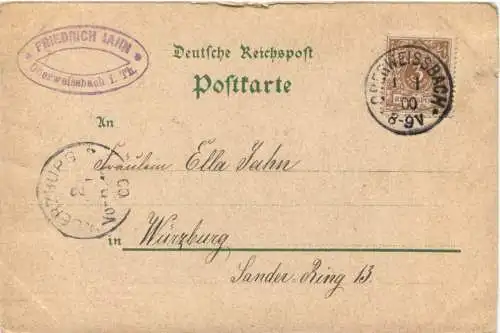 FRIEDRICH JAHN
Oberweissbach i. Th.
Deutsche Reichspost
Postkarte
OBERWEISSBACH
1 1
00
8-9V
An
Fräulein Ella Jahn
WUERZBURG
in Würzburg
Sander-Ring 13.